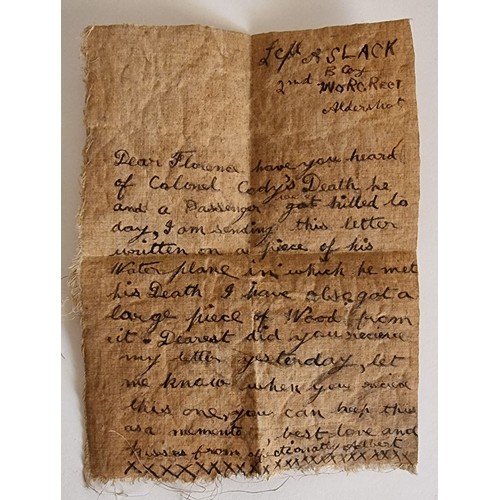 Lcpl A SLACK
B Coy
2nd WORC Rect
Aldershot
Dear Florence, have you heard
of Colonel Cody's Death, he
and a Passenger got killed to
day, I am sending this letter
written on a piece of his
Water plane in which he met
his Death I have also got a
large piece of Wood from
it. Dearest did you recieve
my letter yesterday, let
me know when you
this one, you can keep this
as a memento, best love and
kisses from affectionately Albert
XXXXXXXXXXXXXXXXXXXX